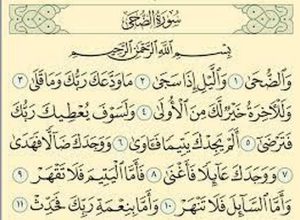 سُورَةُ الضُّحَىٰ
بِسْمِ اللَّهِ الرَّحْمَٰنِ الرَّحِيمِ
وَالضُّحَىٰ ١ وَالَّيْلِ إِذَا سَجَىٰ ٢ مَا وَدَّعَكَ رَبُّكَ وَمَا قَلَىٰ ٣
وَلَلْآخِرَةُ خَيْرٌ لَّكَ مِنَ الْأُولَىٰ ٤ وَلَسَوْفَ يُعْطِيكَ رَبُّكَ
فَتَرْضَىٰ ٥ أَلَمْ يَجِدْكَ يَتِيمًا فَـَٔاوَىٰ ٦ وَوَجَدَكَ ضَآلًّا فَهَدَىٰ
٧ وَوَجَدَكَ عَآئِلًا فَأَغْنَىٰ ٨ فَأَمَّا الْيَتِيمَ فَلَا تَقْهَرْ ٩
وَأَمَّا السَّآئِلَ فَلَا تَنْهَرْ ١٠ وَأَمَّا بِنِعْمَةِ رَبِّكَ فَحَدِّثْ ١١